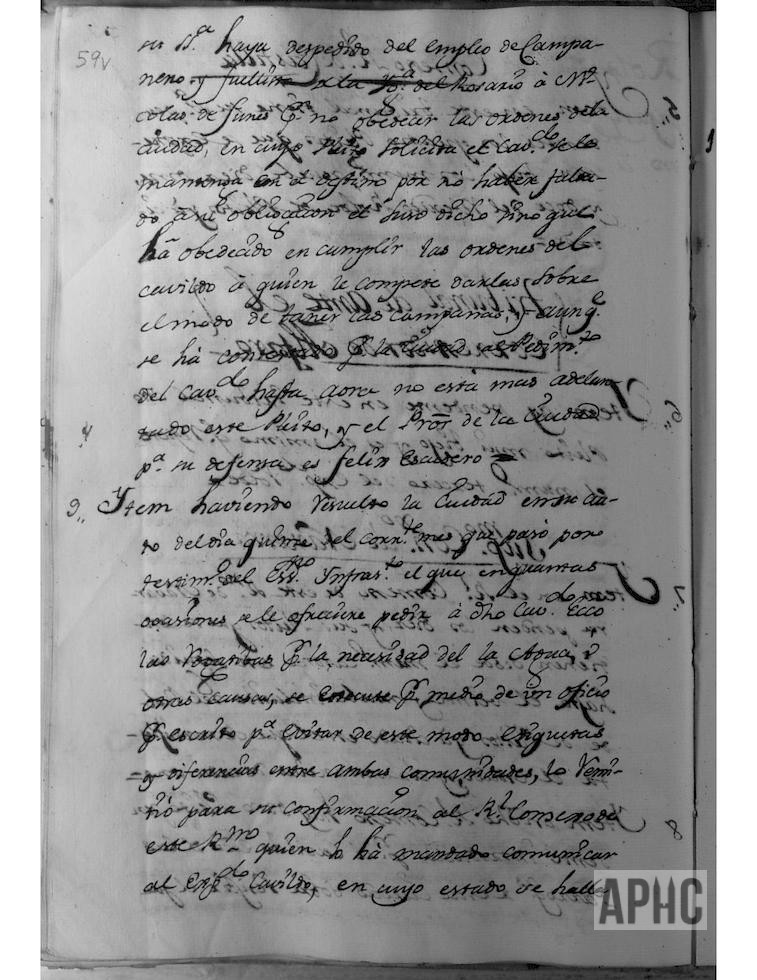 59v
su Sª haya despedido del empleo de Campa-
nero, y a la Hª del Rosario à Ni-
colas de funes pr no obedecer las ordenes de la
Ciudad, en cuyo Pleito solicita el Cavdo. se le
mantenga en el destino por no haber falta-
do à su obligacion el suso dicho sino que
hà obedecido en cumplir las ordenes del
cavildo à quien le compete darlas sobre
el modo de tañer las campanas, y aunq.e
se hà contestado pr la Ciudad al Pedimto
del Cavdo hasta aora no està mas adelan-
tado este Pleito, y el Pror de la Ciudad
pª su defensa es felix Escudero
9,, Ytem haviendo resuelto la Ciudad en su au-
to del dia quinze del corrte mes que pasò por
testimo del Essno Ynfrasto el que en quantas
ocasiones se le ofreciere pedir à dho Cavdo Ecco
las Rogativas pr la necesidad del la Agua, ù
otras Causas, se execute pr medio de un oficio
pr escrito pª evitar de este modo etiquetas
y diferencias entre ambas comunidades, lo remi-
tiò para su confirmacion al Rl Consexo de
este Rno quien lo hà mandado comunicar
al Expdo Cavildo, en cuyo estado se halla
5,,
6,,
7,,
8
APHC